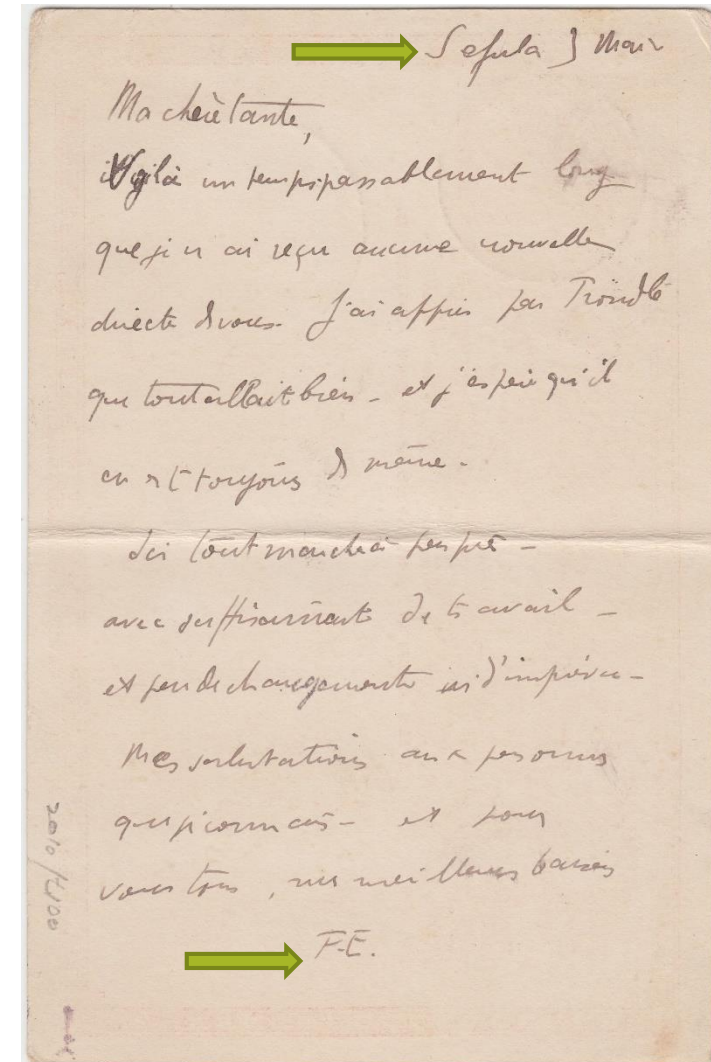 Sefula 3 Mars
Ma chère tante,
Voilà un temps passablement long
que je n'ai reçu aucune nouvelle
directe de vous. J'ai appris par
que tout allait bien - et j'espère qu'il
en est toujours de même.
Ici tout marche à peu près -
avec suffisamment de travail -
et peu de changements ni d'imprévu -
Mes salutations aux personnes
que je connais - et pour
vous tous, mes meilleurs baisers
F-E.
2010/